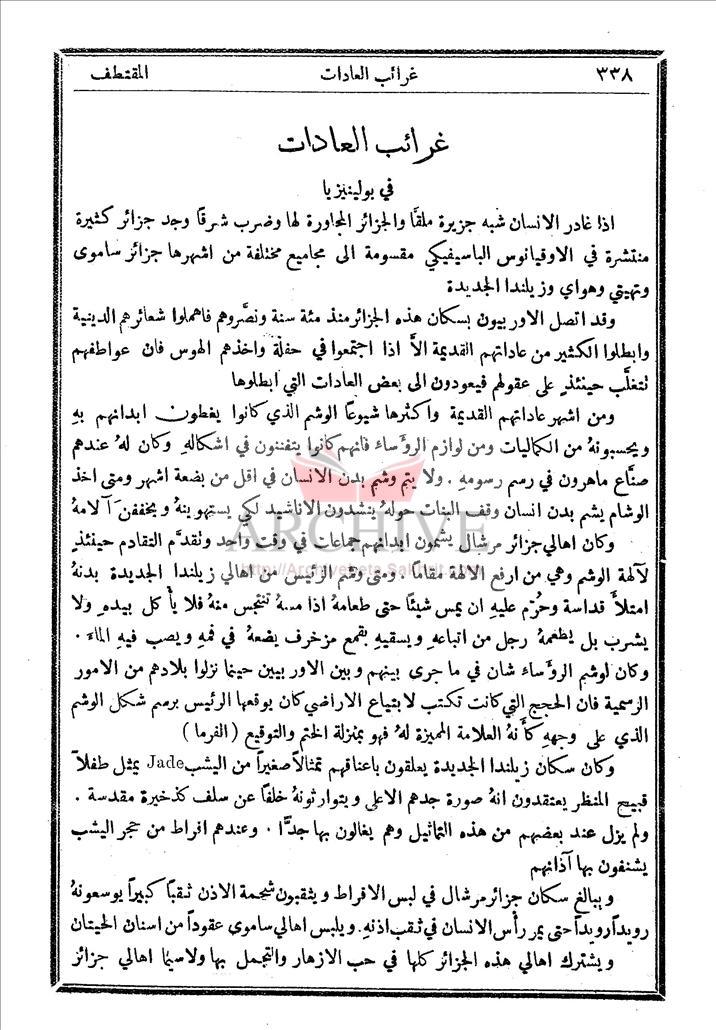 ٣٣٨ غرائب العادات المقتطف
غرائب العادات
في بولينيزيا
اذا غادر الانسان شبه جزيرة ملقَّا والجزائر المجاورة لها وضرب شرقًا وجد جزائر كثيرة
منتشرة في الاوقيانوس الباسيفيكي مقسومة الى مجاميع مختلفة من اشهرها جزائر ساموى
وتهيتي وهواي وزيلندا الجديدة
وقد اتصل الاوربيون بسكان هذه الجزائر منذ مئة سنة ونصَّروهم فاهملوا شعائرهم الدينية
وابطلوا الكثير من عاداتهم القديمة الاَّ اذا اجتمعوا في حفلة واخذهم الهوس فان عواطفهم
تتغلَّب حينئذٍ على عقولهم فيعودون الى بعض العادات التي ابطلوها
ومن اشهر عاداتهم القديمة واكثرها شيوعًا الوشم الذي كانوا يغطون ابدانهم بهِ
ويحسبونهُ من الكماليات ومن لوازم الروَّساء فانهم كانوا يتفننون في اشكالهِ وكان لهُ عندهم
صنَّاع ماهرون في رسم رسومهِ . ولا يتم وشم بدن الانسان في اقل من بضعة اشهر ومتى اخذ
الوشام يشم بدن انسان وقف البنات حولهُ ينشدون الاناشيد لكي يستهوينهُ ويخففنَ آلامهُ
ARCHIVE
وكان اهالي جزائر مرشال يشمون ابدانهم جماعات في وقت واحد وتقدَّم التقادم حينئذٍ
لآلهة الوشم وهي من ارفع الالهة مقامًا . ومتى وشم الرئيس من اهالي زيلندا الجديدة بدنهُ
امتلأ قداسة وحُرّم عليهِ ان يمس شيئًا حتى طعامهُ اذا مسهُ تنجس منهُ فلا يأكل بيده ولا
يشرب بل يطعمهُ رجل من اتباعهِ ويسقيهِ بقمع مزخرف يضعهُ في فمهِ ويصب فيهِ الماءَ .
وكان لوشم الروَّساء شان في ما جرى بينهم وبين الاوربيين حينما نزلوا بلادهم من الامور
الرسمية فان الحجج التي كانت تكتب لابتياع الاراضي كان يوقعها الرئيس برسم شكل الوشم
الذي على وجههِ كأنهُ العلامة المميزة لهُ فهو بمنزلة الختم والتوقيع ( الفرما )
وكان سكان زيلندا الجديدة يعلقون باعناقهم تمثالاً صغيراً من اليشب Jade يمثل طفلاً
قبيح المنظر يعتقدون انهُ صورة جدهم الاعلى ويتوارثونهُ خلفًا عن سلف كذخيرة مقدسة .
ولم يزل عند بعضهم من هذه التماثيل وهم يغالون بها جدًّا . وعندهم اقراط من حجر اليشب
يشنفون بها آذانهم
ويبالغ سكان جزائر مرشال في لبس الاقراط ويثقبون شحمة الاذن ثقبًا كبيراً يوسعونهُ
رويداً رويداً حتى يمر رأس الانسان في ثقب اذنهِ . ويلبس اهالي ساموى عقوداً من اسنان الحيتان
ويشترك اهالي هذه الجزائر كلها في حب الازهار والتجمل بها ولاسيما اهالي جزائر